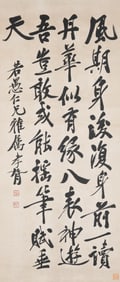 風期身後復身前一讀
丹華似有緣八表神遊
吾豈敢或能搦筆賦垂
天
若愚仁兄雅屬